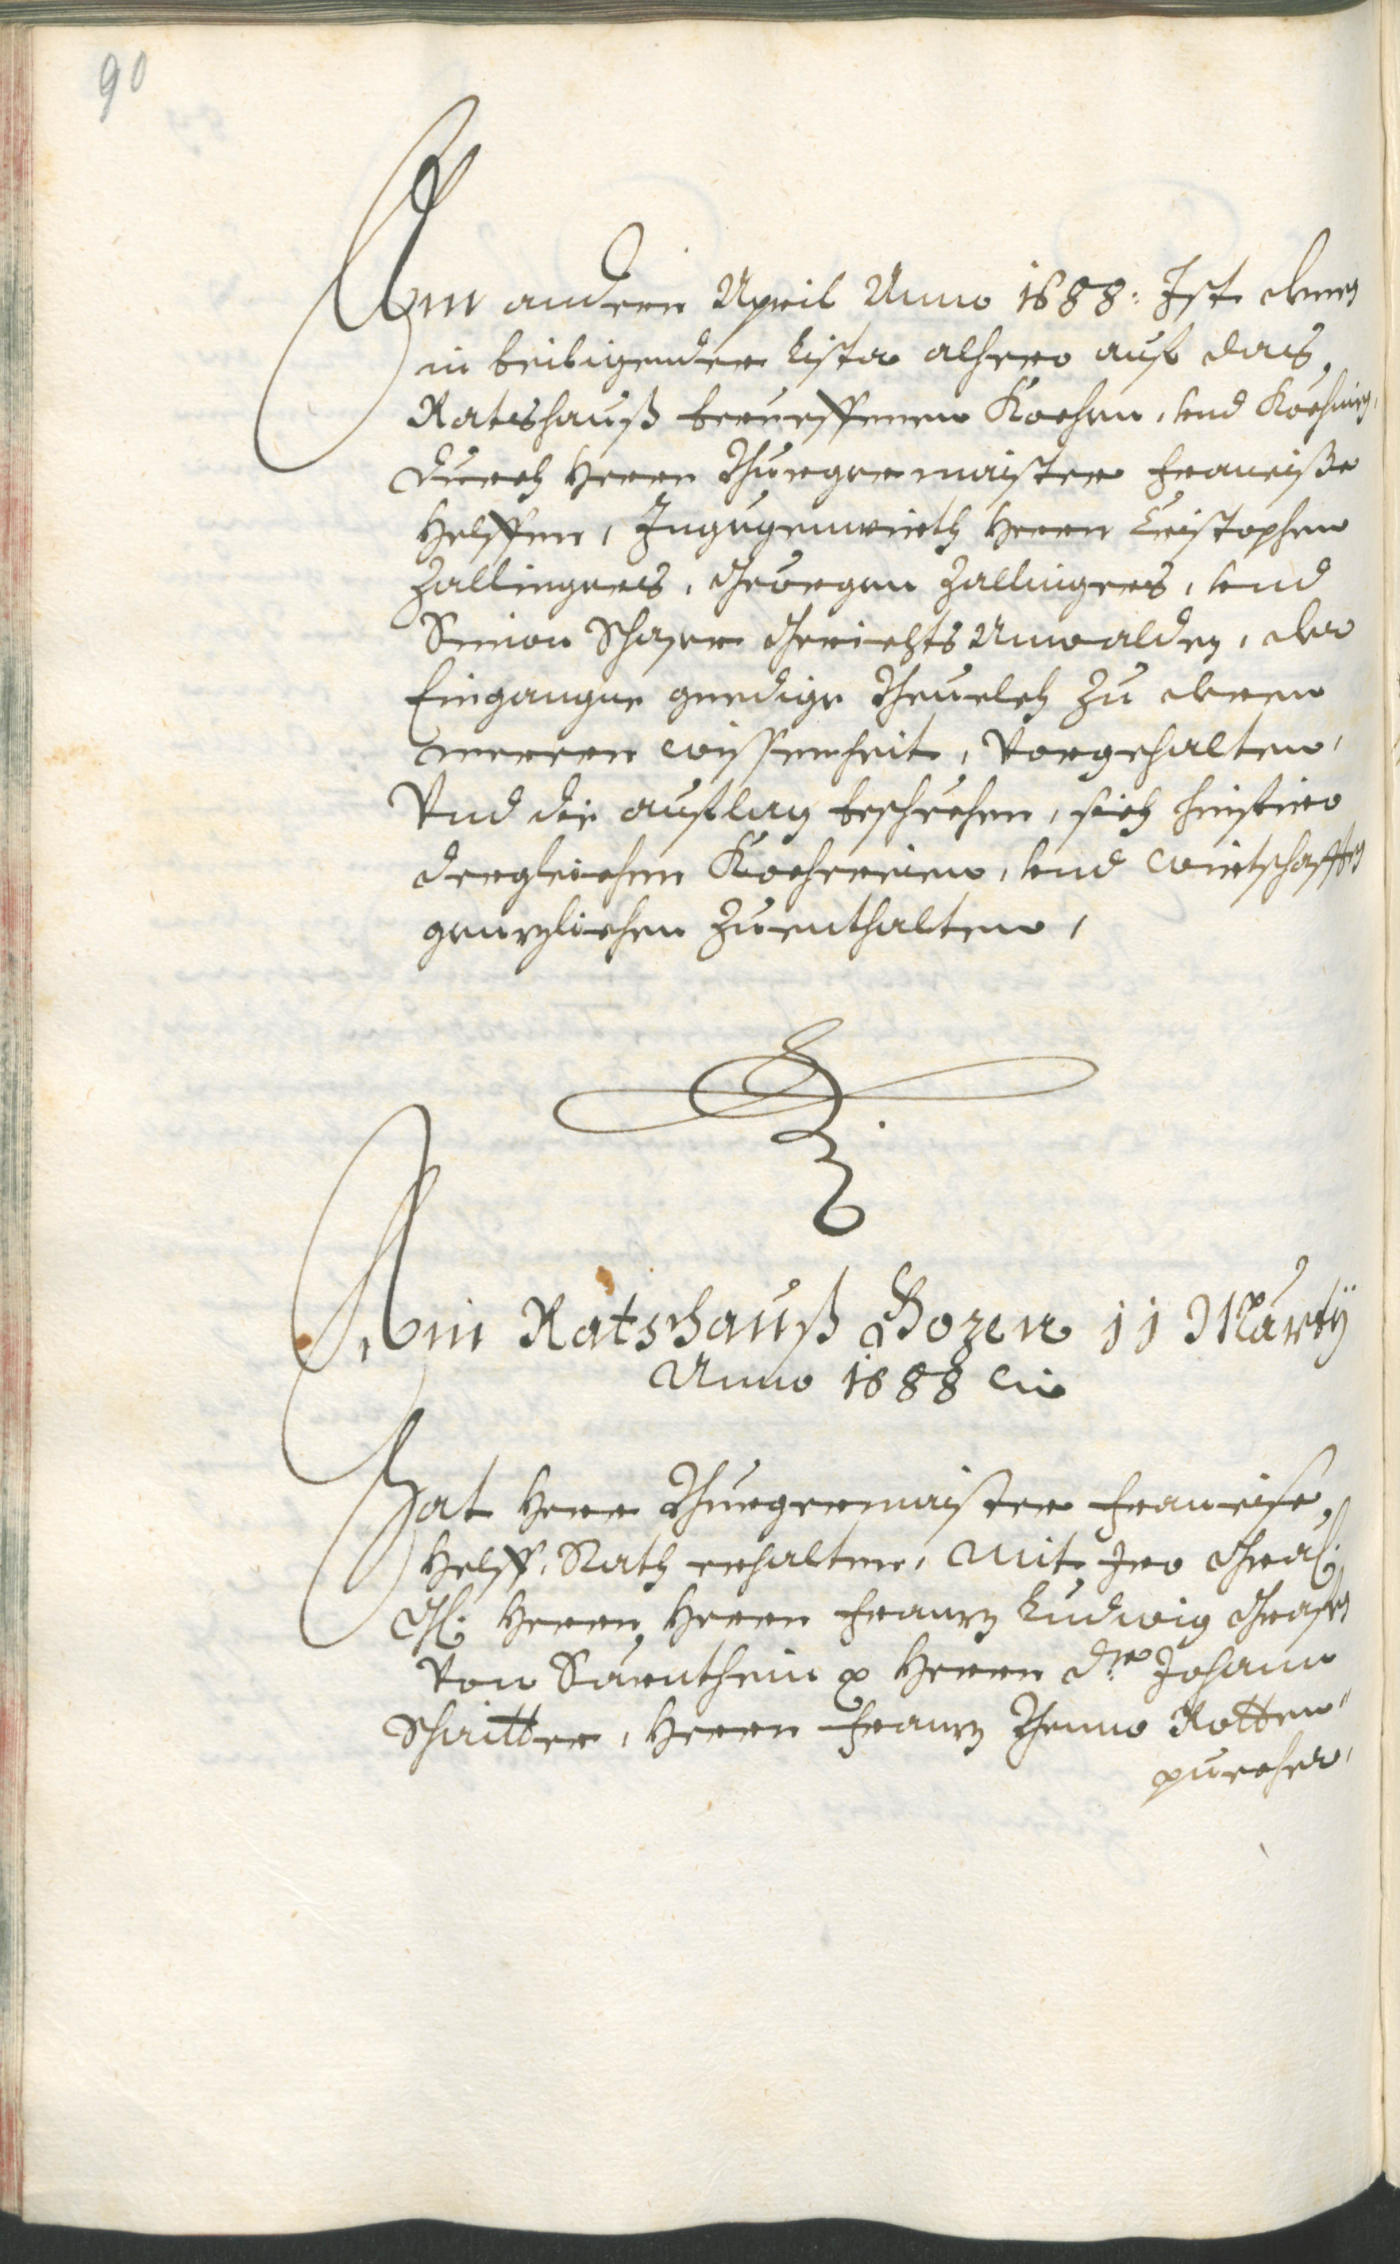 90
Am andern April Anno 1688: Ist denen
in beiligender Lista alhero auf das
Ratshauß berueffenen Kochen, und Köchinen,
durch Herrn Burgermaister Francißen
Helffen, Ingegenwirth Herrn Cristophen
Zallingers, Georgen Zallingers, und
Simon Schaser Gerichts Anwalden, der
Eingangne gnedige Beuelch zu deren
merern wissenheit, Vorgehalten,
Vnd die auflag beschechen, sich hinfiro
dergleichen Kochereien, und Wirtschafften
genzlichen zuenthalten,
Am Ratshauß Bozen 11 Marty
Anno 1688
Hat Herr Burgermaister Francisc
Helff, Rath erhalten, Mit Iro Gnad:
Herrn Herrn Franz Ludwig Grafen
Von Sarnthein p Herrn Dr Johann
Schritter, Herrn Franz Benno Rotten
purcher,